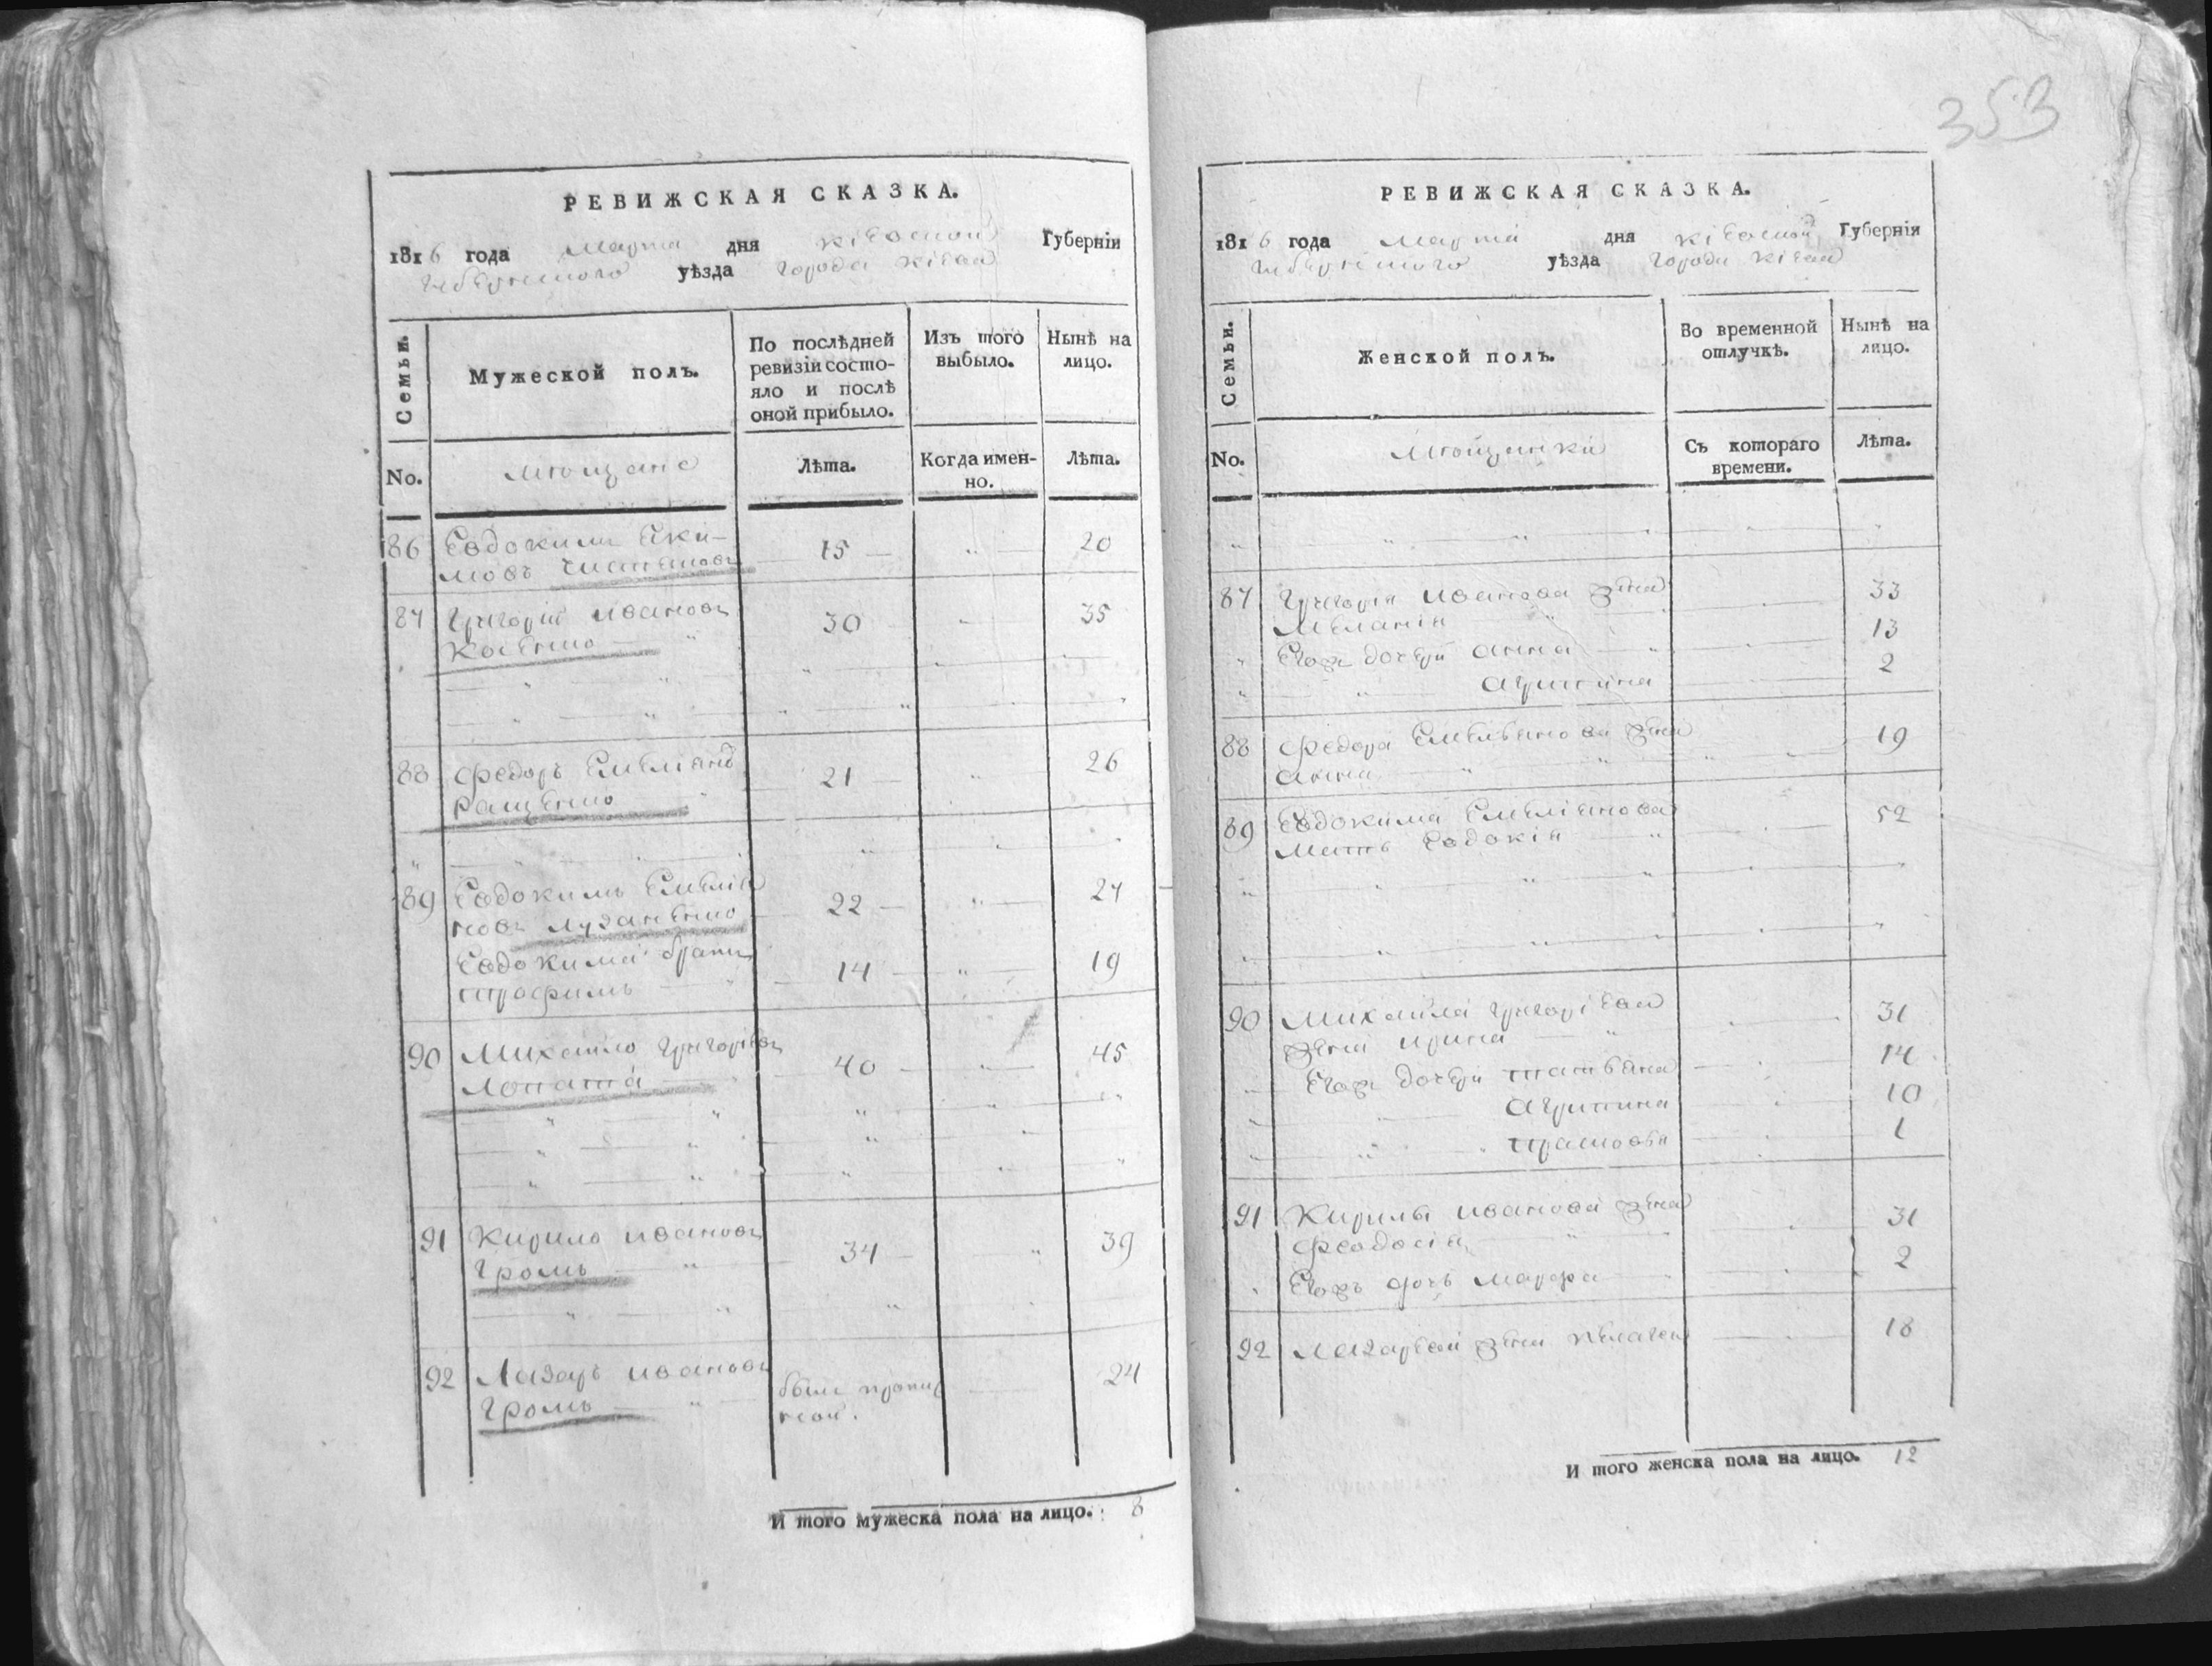 353
РЕВИЖСКАЯ СКАЗКА.
1816 года Марта дня Кіевской Губерніи
уѣзда города Кіева
Семьи.
Мужеской полъ.
По послѣдней
ревизіи состо-
яло и послѣ
оной прибыло.
Изъ того
выбыло.
Нынѣ на
лицо.
No.
мющане
Лѣта.
Когда имен-
но.
Лѣта.
86 Евдокимъ Яки- 15 20
мовъ
87 Григорій Ивановъ 30 35
Косенко
88 Федоръ Емеліянов 21 26
Ращенко
89 Евдокимъ Емелія 22 27
новъ Лузаненко
Евдокима братъ 14 19
Трофимъ
90 Михайло Григоріевъ 40 45
Лопата
91 Кирило Ивановъ 34 39
Громъ
92 Лазарь Ивановъ былъ 24
Громъ
И того мужеска пола на лицо. 8
РЕВИЖСКАЯ СКАЗКА.
1816 года Марта дня Кіевской Губернія
уѣзда города Кіева
Семьи.
Женской полъ.
Во временной
отлучкѣ.
Нынѣ на
лицо.
No.
Мющанки
Съ котораго
времени.
Лѣта.
87 Григорія Иванова жена 33
Меланія
Егожъ дочери Анна 13
Агрипина 2
88 Федора Емельянова жена 19
Анна
89 Евдокима Емеліянова 52
мать Евдокія
90 Михайла Григоріева 31
жена Ирина
Егожъ дочери Татьяна 14
Агрипина 10
Прасковья 1
91 Кирилы Иванова жена 31
Феодосія
Егожъ дочь Марфа 2
92 Лазарева жена Пелагея 18
И того женска пола на лицо. 12